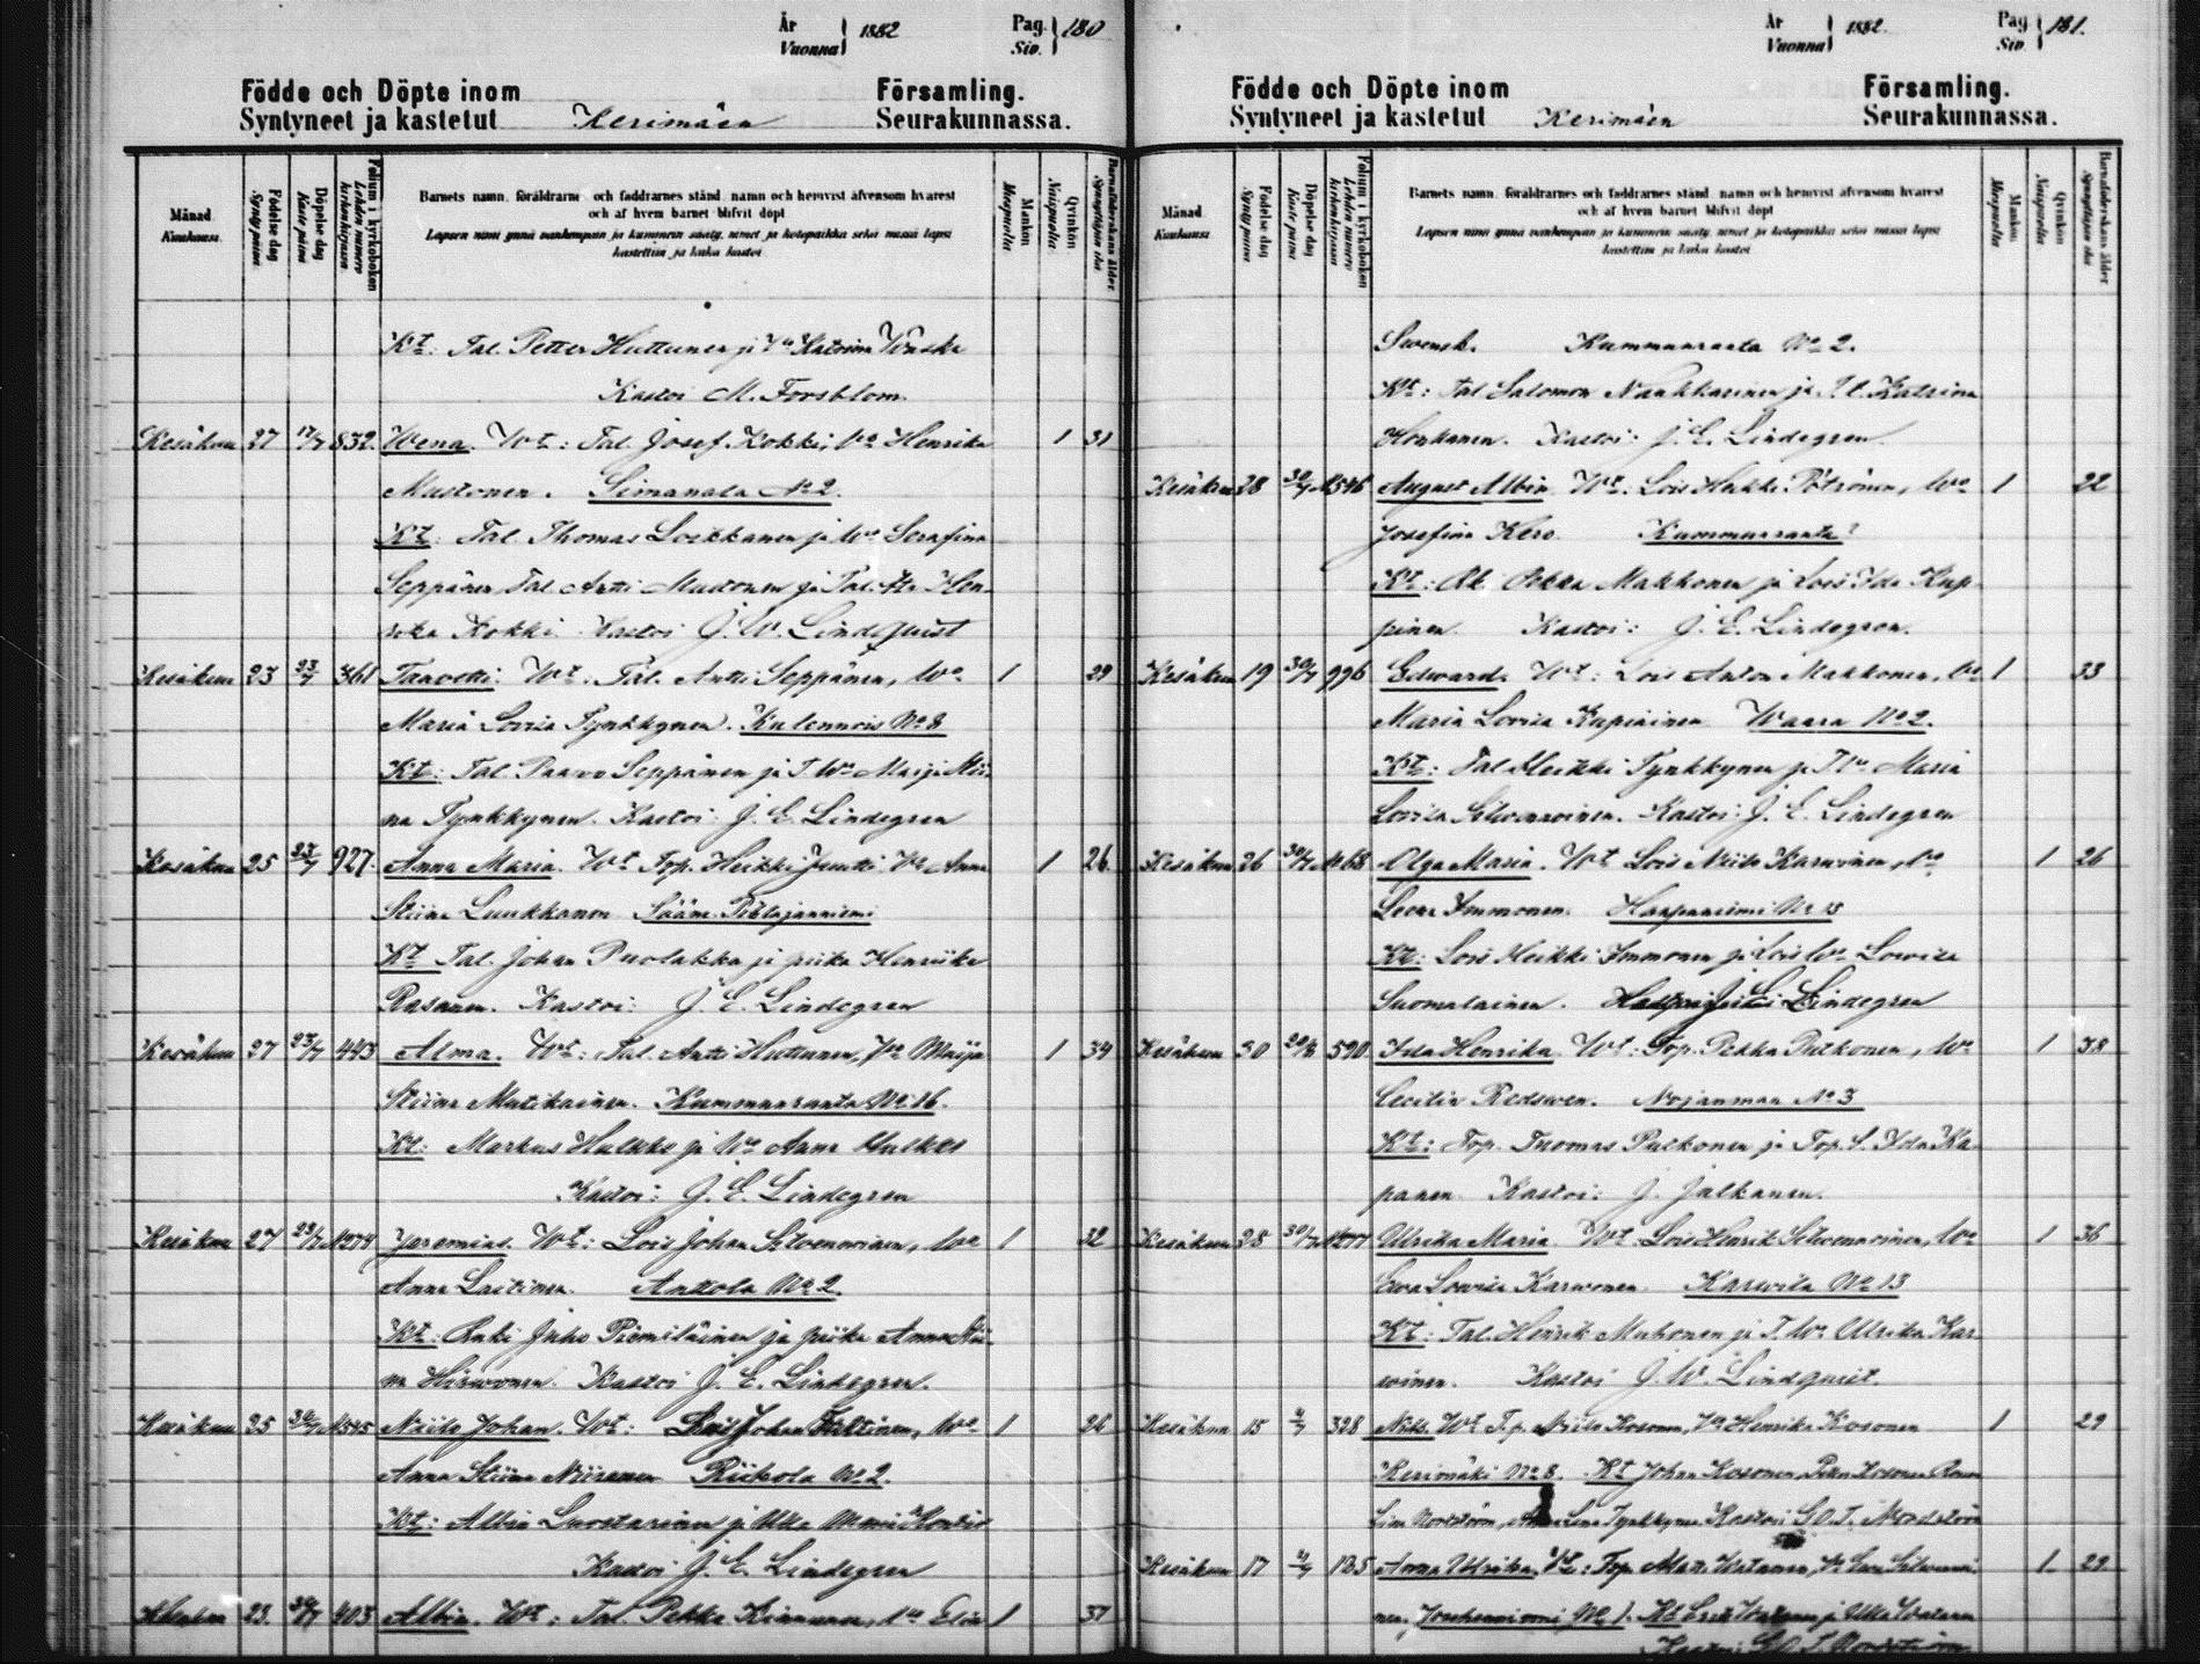 År
Vuonna } 1882
Pag.
Siv. } 180
Födde och Döpte inom Församling.
Syntyneet ja kastetut Kerimäen Seurakunnassa.
Månad
Kuukausi
Födelse dag
Synty päivä
Döpelse dag
Kaste päivä
Folium i kyrkoboken
Lehden numero kirkonkirjassa
Barnets namn, föräldrarne och faddrarnes stånd, namn och hemvist äfvensom hvarest
och af hvem barnet blifvit döpt
Lapsen nimi ynnä vanhempain ja kummein sääty, nimet ja kotopaikka sekä missä lapsi
kastettiin ja kuka kastoi
Mankön
Miespuolia
Qvinkön
Naispuolia
Barnaföderskans ålder
Synnyttäjän ikä
Kt: Tal. Petter Huttunen ja Katrina
Kastoi M. Forsblom.
Kesäkuu 27 17/7 832. Wena. Wt: Tal. Josef Kokki, Wo Henrika 1 31
Mustonen. Simanala No 2.
Kt: Tal. Thomas Loikkanen ja Wo Serafina
Seppänen Tal. Antti Mustonen ja Tal. Hen-
rika Kokki. Kastoi J. W. Lindquist
Kesäkuu 23 23/7 361 Taavetti. Wt. Tal. Antti Seppänen, Wo 1 29
Maria Lovisa Tynkkynen. Kulennois No 8
Kt: Tal. Paavo Seppänen ja T. Wo Maija Stii-
na Tynkkynen. Kastoi J. E. Lindegren
Kesäkuu 25 23/7 927. Anna Maria. Wt Top. Heikki Juutti Wo Anna 1 26.
Stiina Luukkanen Sääm. Pihlajanniemi
Kt Tal. Johan Puolakka ja piika Henriika
Rasanen. Kastoi: J. E. Lindegren
Kesäkuu 27 23/7 443 Alma. Wt: Tal. Antti Huttunen, Wo Maija 1 34
Stiina Mutikainen. Kummunranta No 16.
Kt: Markus Hulkko ja Wo Anna Hulkko
Kastoi: J. E. Lindegren
Kesäkuu 27 23/7 Jeremias. Wt: Lois Johan Silvennoinen, Wo 1 32
Anna Laitinen. Anttola No 2.
Kt: Renki Juho Piemiläinen ja piika Anna Stii-
na Hirwonen. Kastoi J. E. Lindegren.
Kesäkuu 25 30/7 Niilo Johan. Wt: Lois Johan, Wo 1 26
Anna Stiina Niiranen Riikola No 2.
Kt: Albin Luostarinen ja Ulla
Kastoi J. E. Lindegren
Kesäkuu 23. 30/7 403 Albin. Wt: Tal. Pekka Kinnunen, Wo Elin 1 37
År
Vuonna } 1882.
Pag
Siv } 181.
Födde och Döpte inom Församling.
Syntyneet ja kastetut Kerimäen Seurakunnassa.
Månad
Kuukausi
Födelse dag
Synty päivä
Döpelse dag
Kaste päivä
Folium i kyrkoboken
Lehden numero kirkonkirjassa
Barnets namn, föräldrarnes och faddrarnes stånd, namn och hemvist äfvensom hvarest
och af hvem barnet blifvit döpt
Lapsen nimi ynnä vanhempain ja kummein sääty, nimet ja kotopaikka sekä missä lapsi
kastettiin ja kuka kastoi
Mankön
Miespuolia
Qvinkön
Naispuolia
Barnaföderskans ålder
Synnyttäjän ikä
Swensk. Kummunranta No 2.
Kt: Tal Salomon Naukkarinen ja Katrina
Honkanen. Kastoi: J. E. Lindegren.
Kesäkuu 28 30/7 August Albin Wt. Lois Heikki Pötrönen, Wo 1 22
Josefina Kero. Kummunranta
Kt: Pekka Makkonen ja Lois Ida Kup-
pinen. Kastoi: J. E. Lindegren.
Kesäkuu 19 30/7 996 Edward. Wt: Lois Anton Makkonen, Wo 1 33
Maria Lovisa Kupiainen Waara No 2.
Kt: Tal Heikki Tynkkynen ja Maria
Lovisa Silvennoinen. Kastoi: J. E. Lindegren
Kesäkuu 26 30/7 Olga Maria. Wt Lois Niilo Karvinen, Wo 1 26
Leena Immonen. Haapaniemi No 15
Kt: Lois Heikki Immonen ja Lois Wo Lovisa
Suomalainen. J. E. Lindegren
Kesäkuu 30 590. Ida Henrika. Wt: Top. Pekka Pulkonen, Wo 1 38
Cecilia Redswen. Nojanmaa No 3
Kt: Top. Tuomas Pulkonen ja Top. Ida Ka-
panen. Kastoi: J. Jalkanen.
Kesäkuu 28 30/7 Ulrika Maria Wt: Lois Henrik Silvennoinen, Wo 1 36
Ewa Lovisa Karvonen. Karvila No 13
Kt: Tal. Henrik Muhonen ja T. Wo Ulrika Kar-
winen. Kastoi J. W. Lindquist.
Kesäkuu 15 328 Nils. Wt T.p. Niilo Kosonen, Wo Henrika Kosonen 1 29
Kerimäki No 8. Kt Johan Kosonen
Nordström, Tynkkynen Kastoi G. O. T. Nordström
Kesäkuu 17 135 Anna Ulrika. Wt: Top. Matti Watanen, Wo Eva Silvennoi- 1 29.
nen, Jouhenniemi No 1. Kt Erik Watanen ja Ulla Watanen
Kastoi G. O. T. Nordström